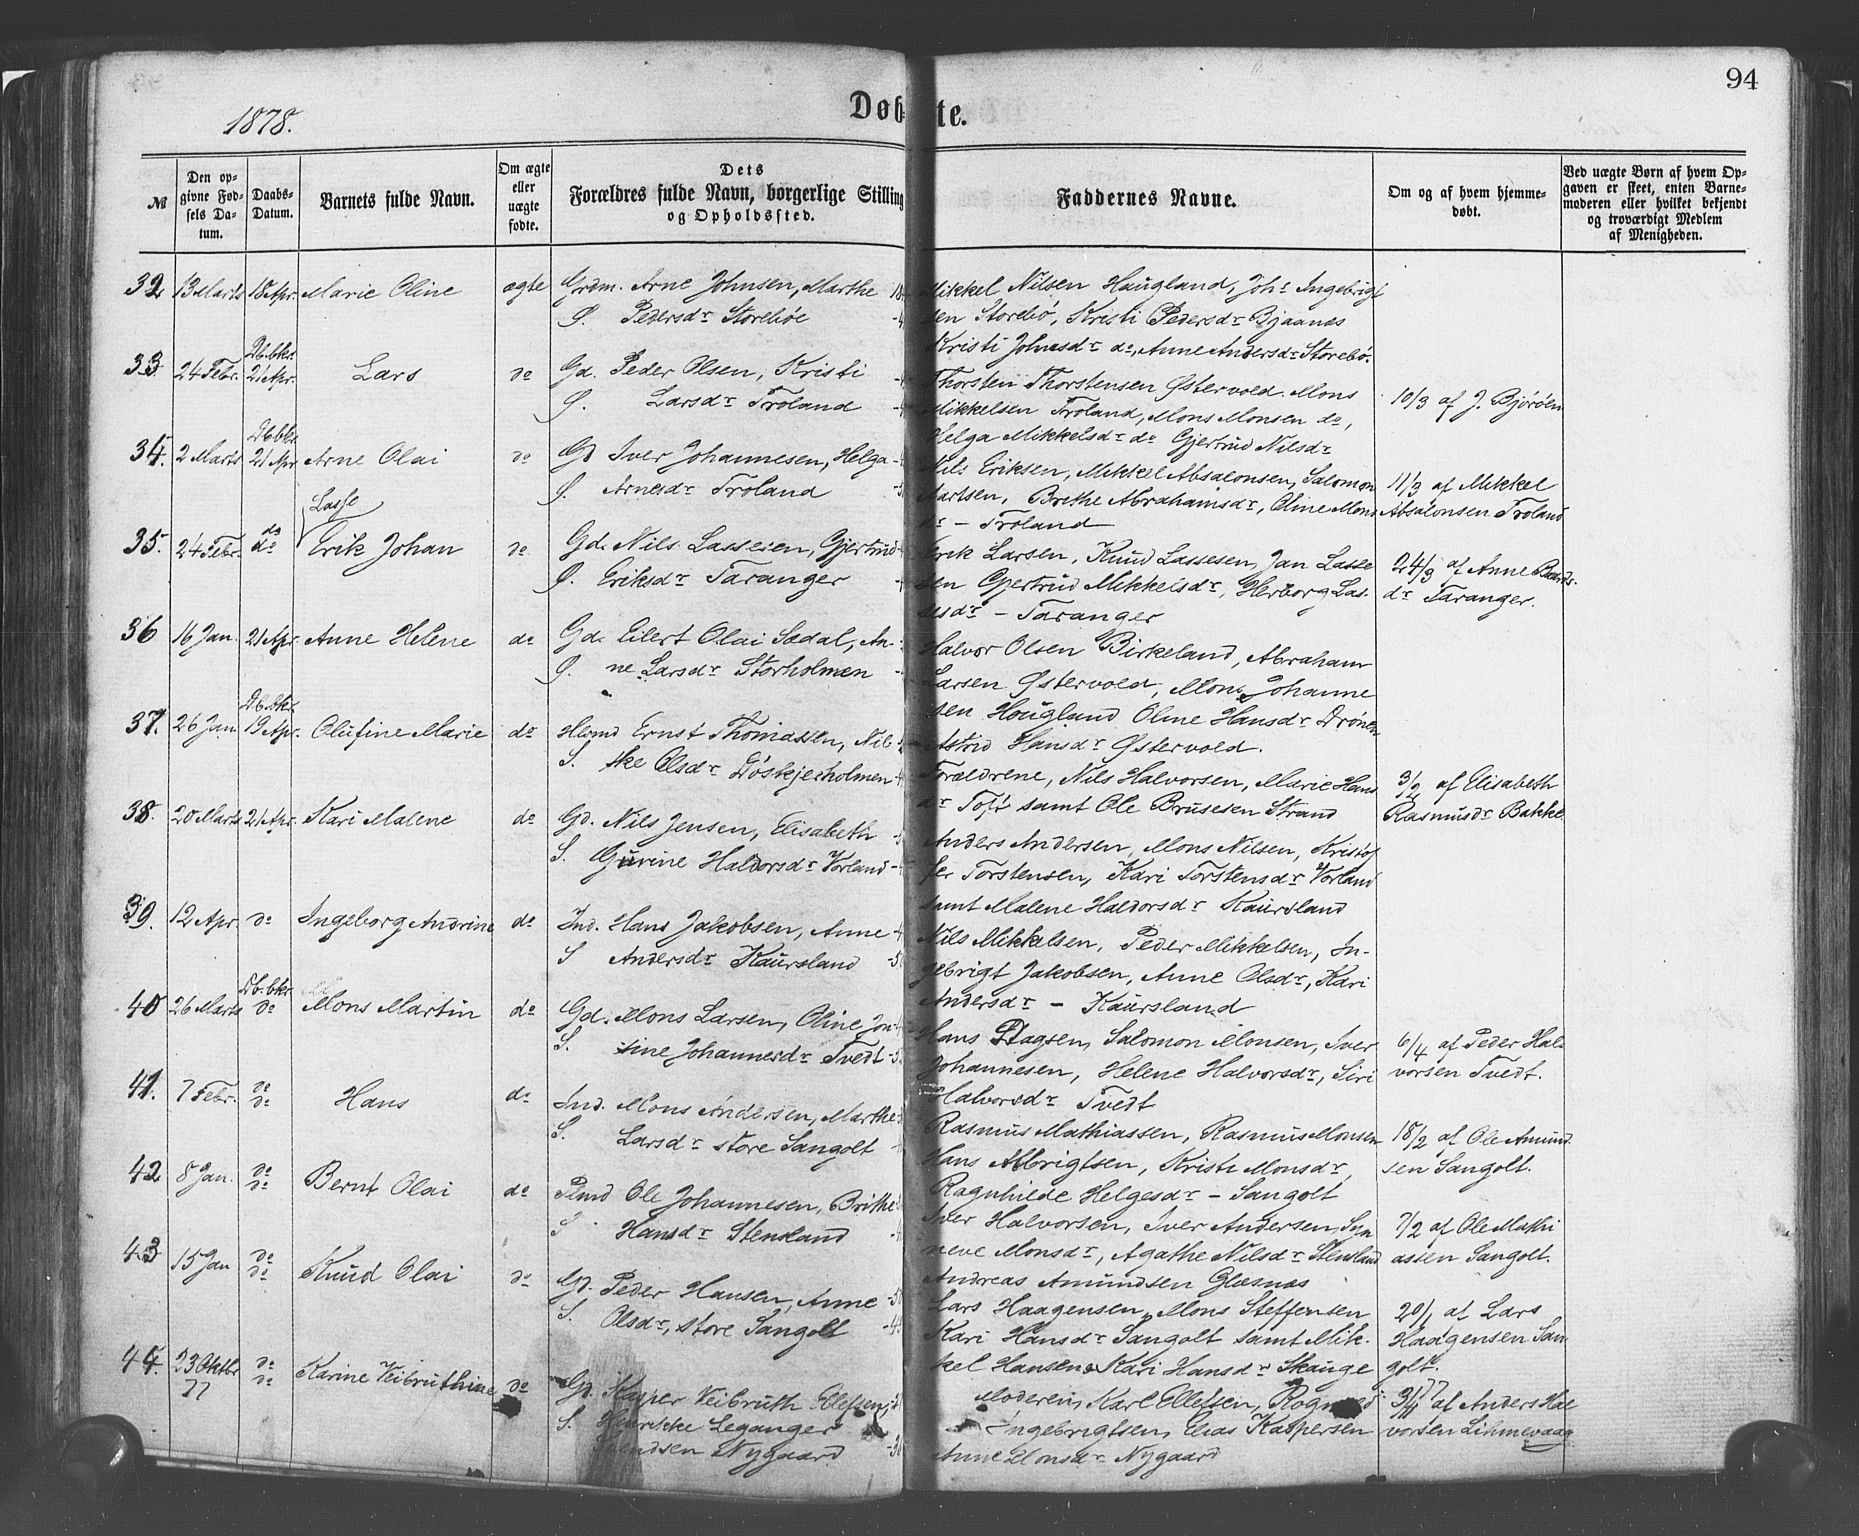 94
1878.
Døbte.
№
Den opgivne Fødsels Datum.
Daabs-Datum.
Barnets fulde Navn.
Om ægte eller uægte fødte.
Dets Forældres fulde Navn, borgerlige Stilling og Opholdssted.
Faddernes Navne.
Om og af hvem hjemmedøbt.
Ved uægte Børn af hvem Opgaven er skeet, enten Barnemoderen eller hvilket bekjendt og troværdigt Medlem af Menigheden.
32 13 Marts 18 Apr. Marie Oline ægte Grdm. Arne Johnsen, Marthe
Ø. Pedersdr Storebøe
Mikkel Nilsen Haugland, Johs Ingebrigt
sen Storebø, Kristi Pedersdr Bjaanes
Kristi Johnsdr do, Anne Andersdr Storebø.
33. 24 Febr. Db. bkr. 21 Apr. Lars do Gd. Peder Olsen, Kristi
Ø. Larsdr Troland
Thorsten Thorstensen Østervold. Mons
Mikkelsen Troland, Mons Monsen do,
Helga Mikkelsdr do Gjertrud Nilsdr
10/3 af J. Bjørøen
34. 2 Marts Db. bkr. 21 Apr Arne Olai do Gd Iver Johannesen, Helga
Ø. Arnesdr Troland
Nils Eriksen, Mikkel Absalonsen, Salomon
Aartsen, Brethe Abrahamsdr, Oline Mons
dr - Troland
11/3 af Mikkel
Absalonsen Troland
35. 24 Febr. do do Lasse
Erik Johan do. Gd. Nils Lassesen, Gjertrud
Ø. Eriksdr Taranger
Erik Larsen, Knud Lassesen, Jan Lasse
sen Gjertrud Mikkelsdr, Herborg Las-
sesdr - Taranger
24/3 af Anne Baards
dr Taranger.
36 16 Jan. 21 Apr Anne Helene do Gd. Eilert Olai Sædal, An-
Ø. ne Larsdr Storholmen
Halvor Olsen Birkeland, Abraham
Larsen Østervold, Mons Johanne
sen Hougland Oline Hansdr Drønen
Astrid Hansdr Østervold.
37. 26 Jan Db. bk. 19 Apr. Olufine Marie do Husmd Ernst Thomassen, Nil
S. ske Olsdr Døskjerholmen
Forældrene, Nils Halvorsen, Marie Hans
dr Toft samt Ole Brusesen Strand
3/2 af Elisabeth
Rasmusdr Bakke.
38. 20 Marts 21 Apr. Kari Malene do Gd. Nils Jensen, Elisabeth
S. Gurine Haldorsdr Vorland
Anders Andersen, Mons Nilsen, Kristof
fer Torstensen, Kari Torstensdr Vorland
samt Malene Haldorsdr Kausland
39. 12 Apr. do Ingeborg Andrine do Ind. Hans Jakobsen, Anne
S Andersdr Kausland
Nils Mikkelsen, Peder Mikkelsen, In-
gebrigt Jakobsen, Anne Olsdr, Kari
Andersdr - Kausland
40 26 Marts Db. bkr. do Mons Martin do Gd. Mons Larsen, Oline Jon
S. sine Johannesdr Tvedt
Hans Dagsen, Salomon Monsen, Iver
Johannesen, Helene Halvorsdr, Siri
Halvorsdr Tvedt
6/4 af Peder Hal-
vorsen Tvedt.
41. 7 Febr. do do Hans do Ind. Mons Andersen, Marthe
S. Larsdr store Sangolt
Rasmus Mathiassen, Rasmus Monsen
Hans Albrigtsen, Kristi Monsdr,
Ragnhilde Helgesdr - Sangolt
18/2 af Ole Amund
sen Sangolt.
42 8 Jan. do do Bernt Olai do Plmd Ole Johannesen, Brithe
S Hansdr Stensland
Iver Halvorsen, Iver Andersen, Syn
neve Monsdr, Agathe Nilsdr Stensland
Andreas Amundsen Glesnæs
7/2 af Ole Mathi
assen Sangolt.
43 15 Jan do do Knud Olai do Gd. Peder Hansen, Anne
S. Olsdr, store Sangolt
Lars Haagensen, Mons Steffensen
Kari Hansdr Sangolt samt Mik-
kel Hansen & Kari Hansdr Skauge
20/1 af Lars
Haagensen San
golt.
44. 23 Oktbr 77 do do Karine Veibruthine do Gd. Kasper Veibruth Ellefsen,
S. Henrikke Leganger
Svendsen Nygaard
Moderen, Karl Ellefsen, Rognald
Ingebrigtsen, Elias Kaspersen
Anne Monsdr Nygaard
3/11 77 af Anders Hal
vorsen Lihmevaag